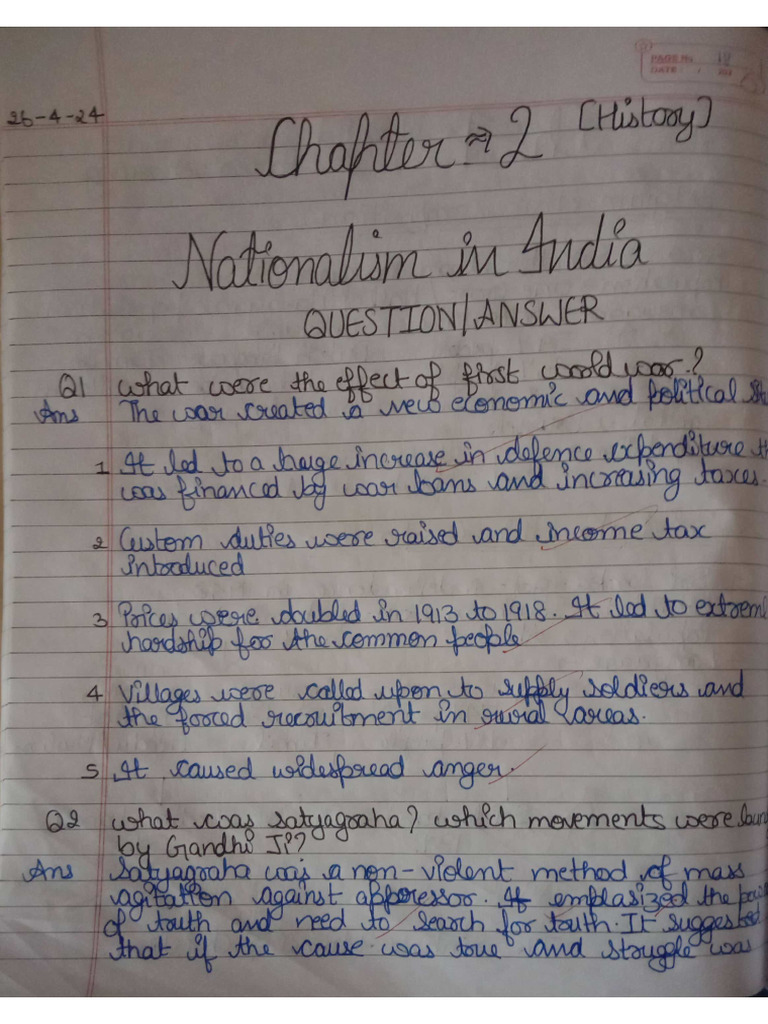 PAGE No.
DATE
26-4-24
[History]
Chapter ⇒ 2
Nationalism in India
QUESTION/ANSWER
Q1 what were the effect of first world war?
Ans The war created a new economic and political
1 It led to a huge increase in defence expenditure
was financed by war loans and increasing taxes.
2 Custom duties were raised and income tax
introduced
3 Prices were doubled in 1913 to 1918. It led to extrem
hardship for the common people
4 Villages were called upon to supply soldiers and
the forced recruitment in rural areas.
5 It caused widespread anger.
Q2 what was satyagraha? which movements were
by Gandhi Ji?
Ans Satyagraha was a non-violent method of mass
agitation against apperessor. It emplasized the
of truth and need to search for truth. It suggested
that if the cause was true and struggle was